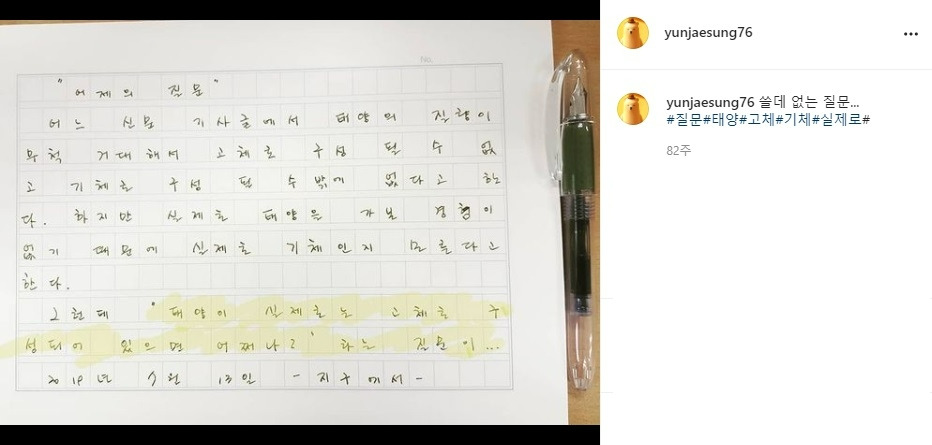 No.
"어제의 질문"
어느 신문 기사글에서 태양의 질량이
무척 거대해서 고체로 구성 될 수 없
고 기체로 구성 될 수밖에 없다고 한
다. 하지만 실제로 태양은 가본 경험이
없기 때문에 실제로 기체인지 모른다고
한다.
그런데 "태양이 실제로는 고체로 구
성되어 있으면 어쩌나?" 라는 질문이...
2019년 5월 13일 - 지구에서 -
yunjaesung76
yunjaesung76 쓸데 없는 질문...
#질문#태양#고체#기체#실제로#
82주